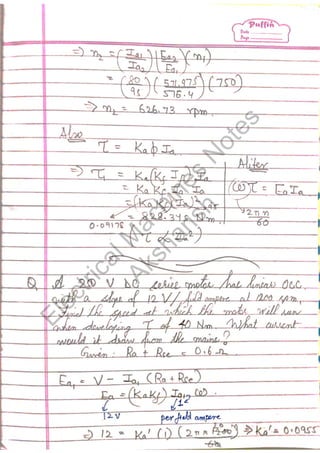 Puffin
Date
Page
=) n₂ = (Ia1/Ia2) (Ea2/Ea1) (n1)
= (80/95) (571.975/576.4) (750)
=> n₂ = 626.73 rpm.
Also
τ = Ka ϕ Ia
Alitex
=) τ₁ = Ka(Kf Ia) Ia
= Ka Kf Ia Ia
(ω)τ = Ea Ia
= (KaKf)(Ia)²
2πn
60
= 828.345 Nm.
0.09178
(τ ∝ Ia²)
Electrical Machines Notes
Akshansh
Q A V DC series motor has linear OCC,
with a slope of 12 V/field ampere at 1200 rpm,
find the speed at which the motor will run
when developing τ of 40 Nm. What current
would it draw from the mains?
Given: Ra + Rse = 0.6 Ω
Ea1 = V - Ia1 (Ra + Rse)
Ea = (KaKf) Ia1 (ω).
12V per field ampere
=) 12 = Ka' (1) (2π × 1200/60) => Ka' = 0.0955